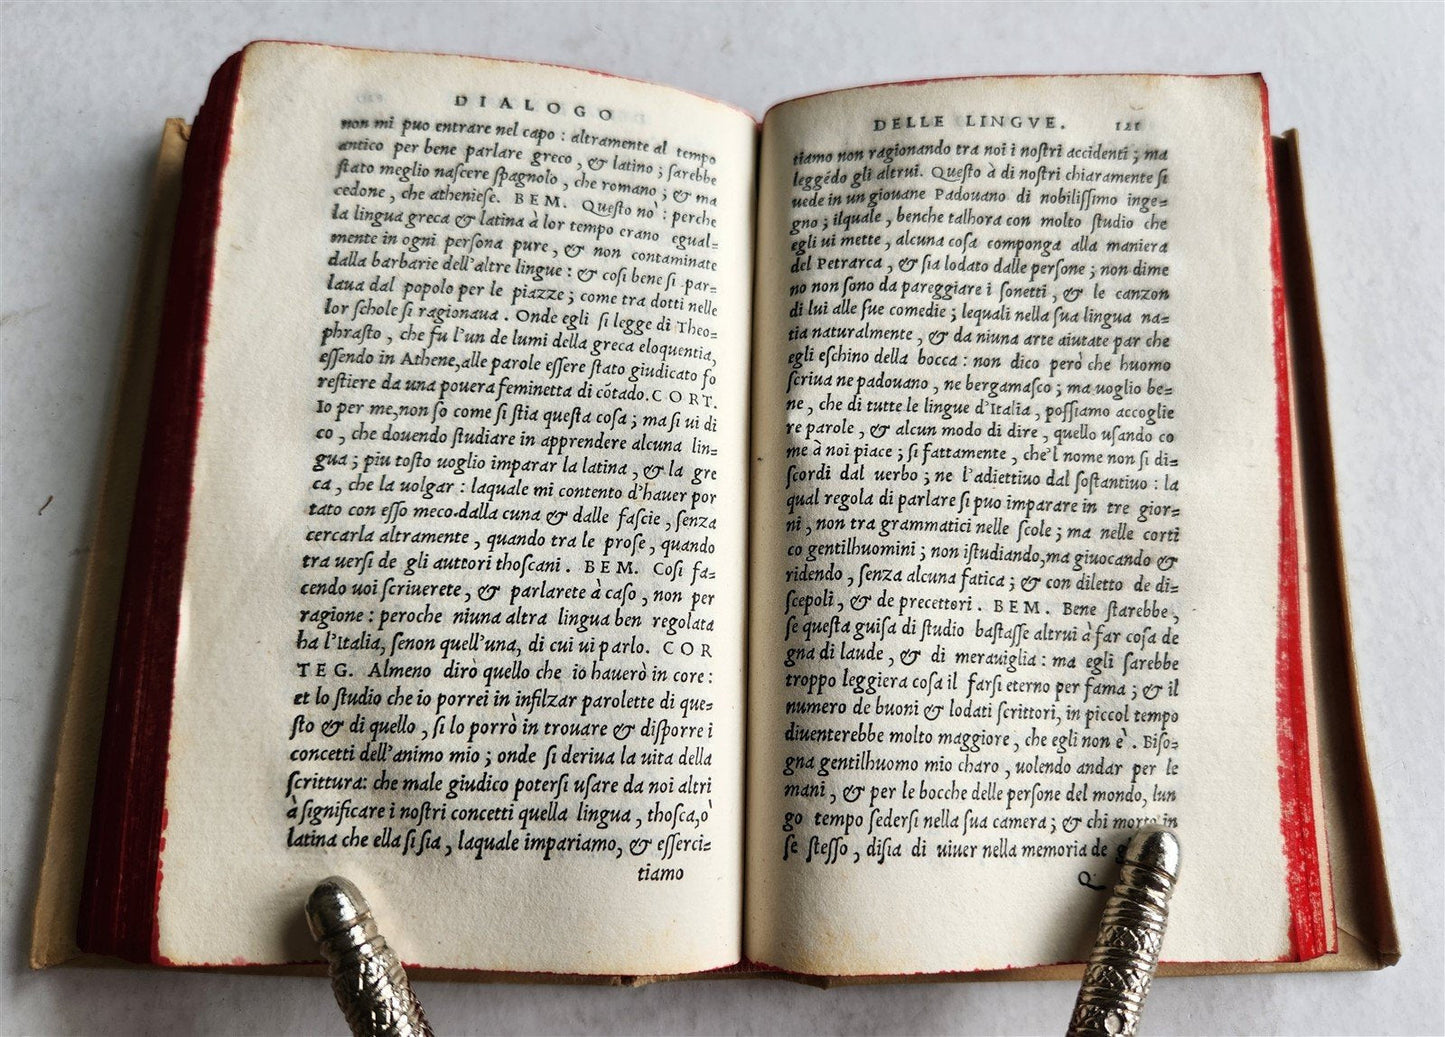 DIALOGO
non mi puo entrare nel capo : altramente al tempo
antico per bene parlare greco , & latino ; sarebbe
stato meglio nascere spagnolo , che romano ; & ma
cedone , che atheniese. BEM. Questo nò : perche
la lingua greca & latina à lor tempo erano egual=
mente in ogni persona pure , & non contaminate
dalla barbarie dell'altre lingue : & cosi bene si par=
laua dal popolo per le piazze ; come tra dotti nelle
lor schole si ragionaua . Onde egli si legge di Theo=
phrasto , che fu l'un de lumi della greca eloquentia,
essendo in Athene,alle parole essere stato giudicato fo
restiere da una pouera feminetta di cõtado. CORT.
Io per me,non so come si stia questa cosa ; ma si ui di
co , che douendo studiare in apprendere alcuna lin=
gua ; piu tosto uoglio imparar la latina , & la gre
ca , che la uolgar : laquale mi contento d'hauer por
tato con esso meco.dalla cuna & dalle fascie , senza
cercarla altramente , quando tra le prose , quando
tra uersi de gli auttori thoscani . BEM. Cosi fa=
cendo uoi scriuerete , & parlarete à caso , non per
ragione : peroche niuna altra lingua ben regolata
ha l'Italia, senon quell'una, di cui ui parlo. COR
TEG. Almeno dirò quello che io hauerò in core :
et lo studio che io porrei in infilzar parolette di que=
sto & di quello , si lo porrò in trouare & disporre i
concetti dell'animo mio ; onde si deriua la uita della
scrittura: che male giudico potersi usare da noi altri
à significare i nostri concetti quella lingua , thosca,ò
latina che ella si sia , laquale impariamo, & esserci=
tiamo
DELLE LINGVE. 121
tiamo non ragionando tra noi i nostri accidenti ; ma
leggẽdo gli altrui. Questo à di nostri chiaramente si
uede in un giouane Padouano di nobilissimo inge=
gno ; ilquale , benche talhora con molto studio che
egli ui mette , alcuna cosa componga alla maniera
del Petrarca , & sia lodato dalle persone ; non dime
no non sono da pareggiare i sonetti , & le canzon
di lui alle sue comedie ; lequali nella sua lingua na=
tia naturalmente , & da niuna arte aiutate par che
egli eschino della bocca : non dico però che huomo
scriua ne padouano , ne bergamasco ; ma uoglio be=
ne , che di tutte le lingue d'Italia , possiamo accoglie
re parole , & alcun modo di dire , quello usando co
me à noi piace ; si fattamente , che'l nome non si di=
scordi dal uerbo ; ne l'adiettiuo dal sostantiuo : la
qual regola di parlare si puo imparare in tre gior=
ni , non tra grammatici nelle scole ; ma nelle corti
co gentilhuomini ; non istudiando,ma giuocando &
ridendo , senza alcuna fatica ; & con diletto de di=
scepoli , & de precettori . BEM. Bene starebbe ,
se questa guisa di studio bastasse altrui à far cosa de
gna di laude , & di merauiglia : ma egli sarebbe
troppo leggiera cosa il farsi eterno per fama ; & il
numero de buoni & lodati scrittori, in piccol tempo
diuenterebbe molto maggiore , che egli non è . Biso=
gna gentilhuomo mio charo , uolendo andar per le
mani , & per le bocche delle persone del mondo, lun
go tempo sedersi nella sua camera ; & chi morto in
se stesso , disia di uiuer nella memoria de